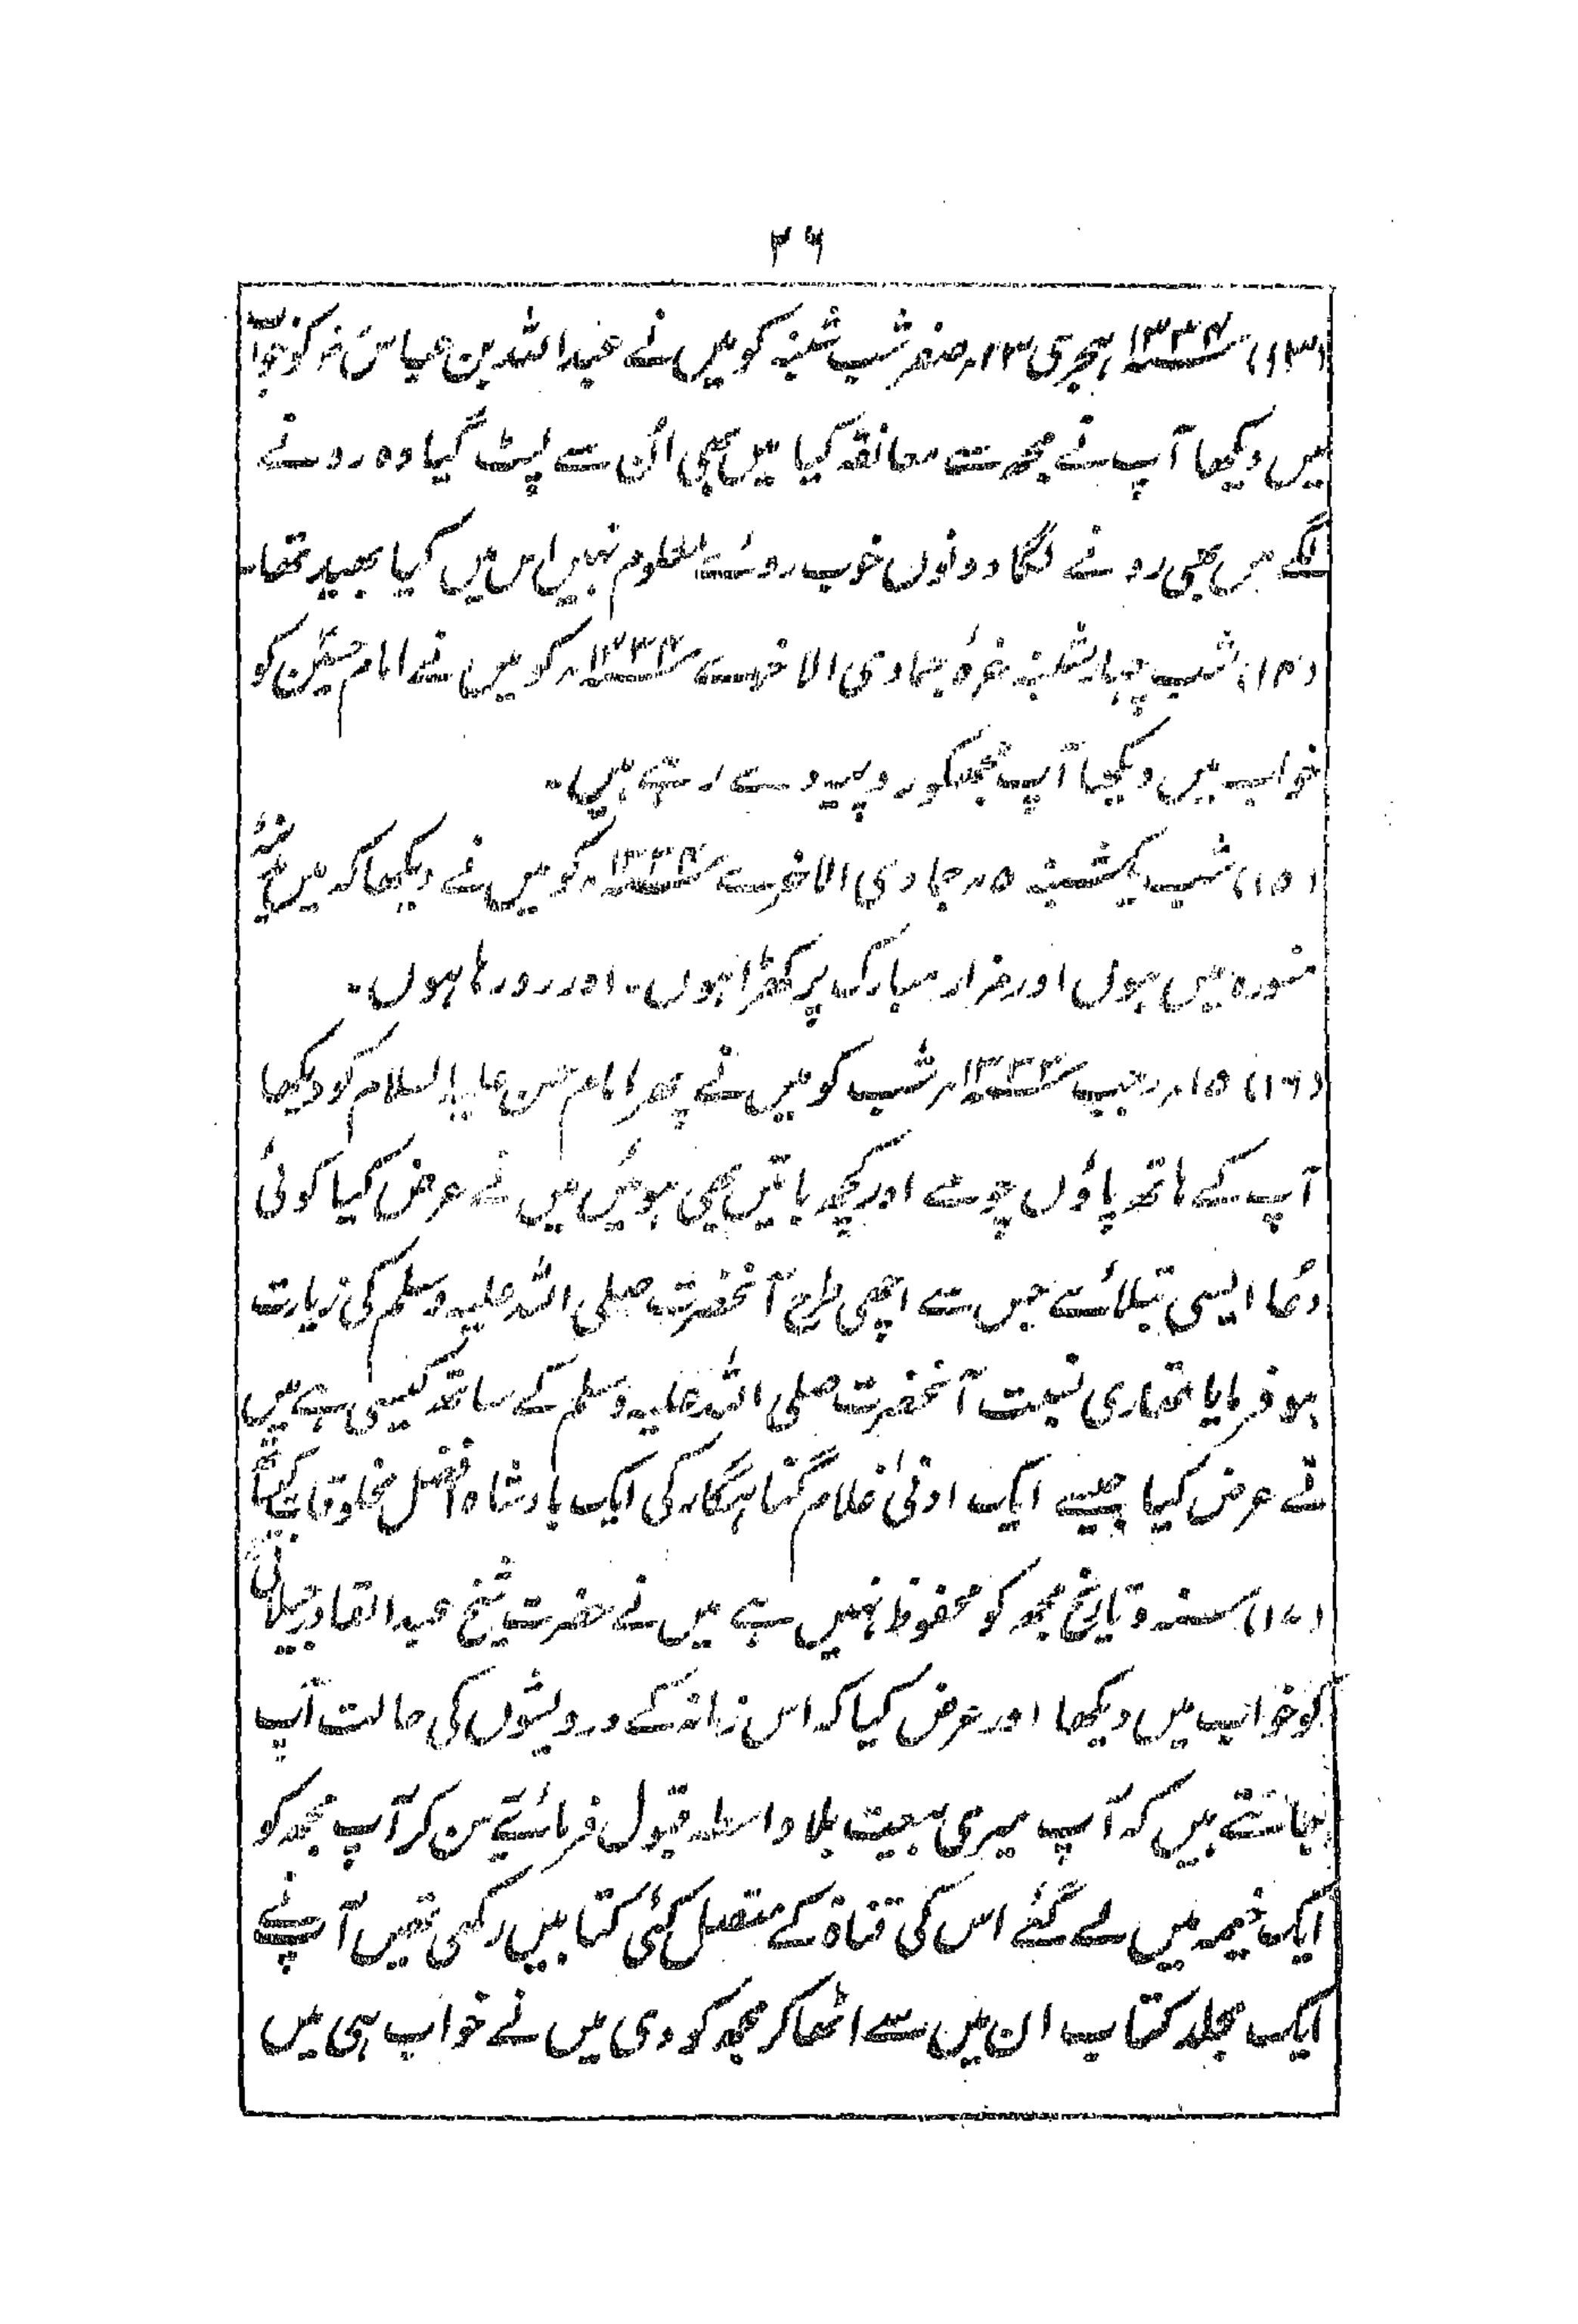 ۲۶
(۱۳) ۱۳۳۴ ہجری ۱۳؍ صفر شب شنبہ کو میں نے عبداللہ بن عباسؓ کو خواب
میں دیکھا آپ نے مجھ سے معانقہ کیا میں بھی اُن سے لپٹ گیا وہ رونے
لگے میں بھی رونے لگا دونوں خوب روئے معلوم نہیں اس میں کیا بھید تھا۔
(۱۴) شب چہارشنبہ غرۂ جمادی الاخرے ۱۳۳۴؍ کو میں نے امام حسینؑ کو
خواب میں دیکھا آپ مجھکو روپیہ دے رہے ہیں۔
(۱۵) شب یکشنبہ ۵؍ جمادی الاخرے ۱۳۳۴؍ کو میں نے دیکھا کہ میں مدینہ
منورہ میں ہوں اور مزار مبارک پر کھڑا ہوں۔ اور رو رہا ہوں۔
(۱۶) ۱۵؍ رجب ۱۳۳۴؍ شب کو میں نے پھر امام حسن علیہ السلام کو دیکھا
آپ کے ہاتھ پاؤں چومے اور کچھ باتیں بھی ہوئیں میں نے عرض کیا کوئی
دُعا ایسی بتلائے جس سے اچھی طرح آنحضرت صلی اللہ علیہ وسلم کی زیارت
ہو فرمایا تمھاری نسبت آنحضرت صلی اللہ علیہ وسلم کے ساتھ کیسی ہے میں
نے عرض کیا جیسے ایک ادنیٰ غلام گناہگار کی ایک بادشاہ افضل مخلوقات کے
(۱۷) سنہ و تاریخ مجھ کو محفوظ نہیں ہے میں نے حضرت شیخ عبدالقادر جیلانی
کو خواب میں دیکھا اور عرض کیا کہ اس زمانہ کے درویشوں کی حالت آپ
جانتے ہیں کہ آپ میری بیعت بلا واسطہ قبول فرمائے سن کر آپ مجھ کو
ایک خیمہ میں لے گئے اس کی قناۃ کے متصل کئی کتابیں رکھی تھیں آپ نے
ایک مجلد کتاب ان میں سے اٹھا کر مجھ کو دی میں نے خواب ہی میں